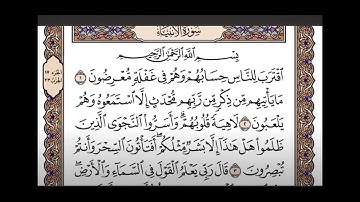 سورة الأنبياء
بسم الله الرحمن الرحيم
اقترب للناس حسابهم وهم في غفلة معرضون ١
ما يأتيهم من ذكر من ربهم محدث إلا استمعوه وهم
يلعبون ٢ لاهية قلوبهم وأسروا النجوى الذين
ظلموا هل هذا إلا بشر مثلكم أفتأتون السحر وأنتم
تبصرون ٣ قال ربي يعلم القول في السماء والأرض